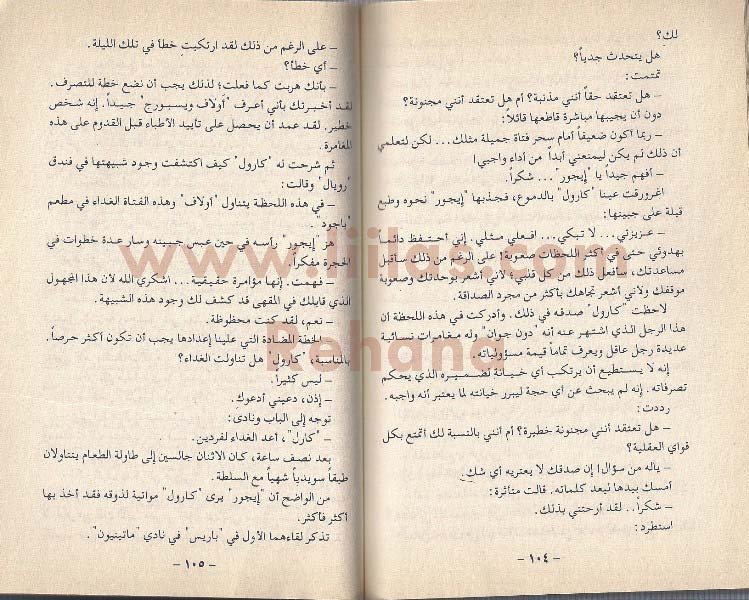 لك؟
هل يتحدث جدياً؟
تمتمت:
– هل تعتقد حقاً أنني مذنبة؟ أم هل تعتقد أنني مجنونة؟
دون أن يجيبها مباشرة قاطعها قائلاً:
– ربما أكون ضعيفاً أمام سحر فتاة جميلة مثلك... لكن لتعلمي
أن ذلك لم يكن ليمنعني أبداً من أداء واجبي!
– أفهم جيداً يا "إيجور"... شكراً.
اغرورقت عينا "كارول" بالدموع، فجذبها "إيجور" نحوه وطبع
قبلة على جبينها:
– عزيزتي... لا تبكي... افعلي مثلي. إني أحتفظ دائما
بهدوئي حتى في أكثر اللحظات صعوبة! على الرغم من ذلك سأقبل
مساعدتك، سأفعل ذلك من كل قلبي؛ لأني أشعر بوحدتك وصعوبة
موقفك ولأني أشعر تجاهك بأكثر من مجرد الصداقة.
لاحظت "كارول" صدقه في ذلك. وأدركت في هذه اللحظة أن
هذا الرجل الذي اشتهر عنه أنه "دون جوان" وله مغامرات نسائية
عديدة رجل عاقل ويعرف تماماً قيمة مسؤولياته.
إنه لا يستطيع أن يرتكب أي خيانة لضميره الذي يحكم
تصرفاته. إنه لم يبحث عن أي حجة ليبرر خيانته لما يعتبره أنه واجبه.
رددت:
– هل تعتقد أنني مجنونة خطيرة؟ أم أنني بالنسبة لك أتمتع بكل
قواي العقلية؟
– ياله من سؤال! إن صدقك لا يعتريه أي شك.
أمسك بيدها ليعد كلماته. قالت متأثرة:
– شكراً.. لقد أرحتني بذلك.
استطرد:
– ١٠٤ –
– على الرغم من ذلك لقد ارتكبت خطأ في تلك الليلة.
– أي خطأ؟
– بأنك هربت كما فعلت؛ لذلك يجب أن نضع خطة للتصرف.
لقد أخبرتك بأني أعرف "أولاف ويسبورج" جيداً. إنه شخص
خطير. لقد عمد أن يحصل على تأييد الأطباء قبل القدوم على هذه
المغامرة.
ثم شرحت له "كارول" كيف اكتشفت وجود شبيهتها في فندق
"رويال" وقالت:
– في هذه اللحظة يتناول "أولاف" وهذه الفتاة الغداء في مطعم
"باجود".
هز "إيجور" رأسه في حين عبس جبينه وسار عدة خطوات في
الحجرة مفكراً.
– فهمت. إنها مؤامرة حقيقية... اشكري الله لأن هذا المجهول
الذي قابلك في المقهى قد كشف لك وجود هذه الشبيهة.
– نعم، لقد كنت محظوظة.
الخطة المضادة التي علينا إعدادها يجب أن تكون أكثر حرصاً.
بالمناسبة، "كارول" هل تناولت الغداء؟
– ليس كثيراً.
– إذن، دعيني أدعوك.
توجه إلى الباب ونادى:
– "كارل"، أعد الغداء لفردين.
بعد نصف ساعة، كان الاثنان جالسين إلى طاولة الطعام يتناولان
طبقاً سويدياً شهياً مع السلطة.
من الواضح أن "إيجور" يرى "كارول" مواتية لذوقه فقد أخذ بها
أكثر فأكثر.
تذكر لقاءهما الأول في "باريس" في نادي "ماتينيون".
– ١٠٥ –
www.liilas.com
Rehana